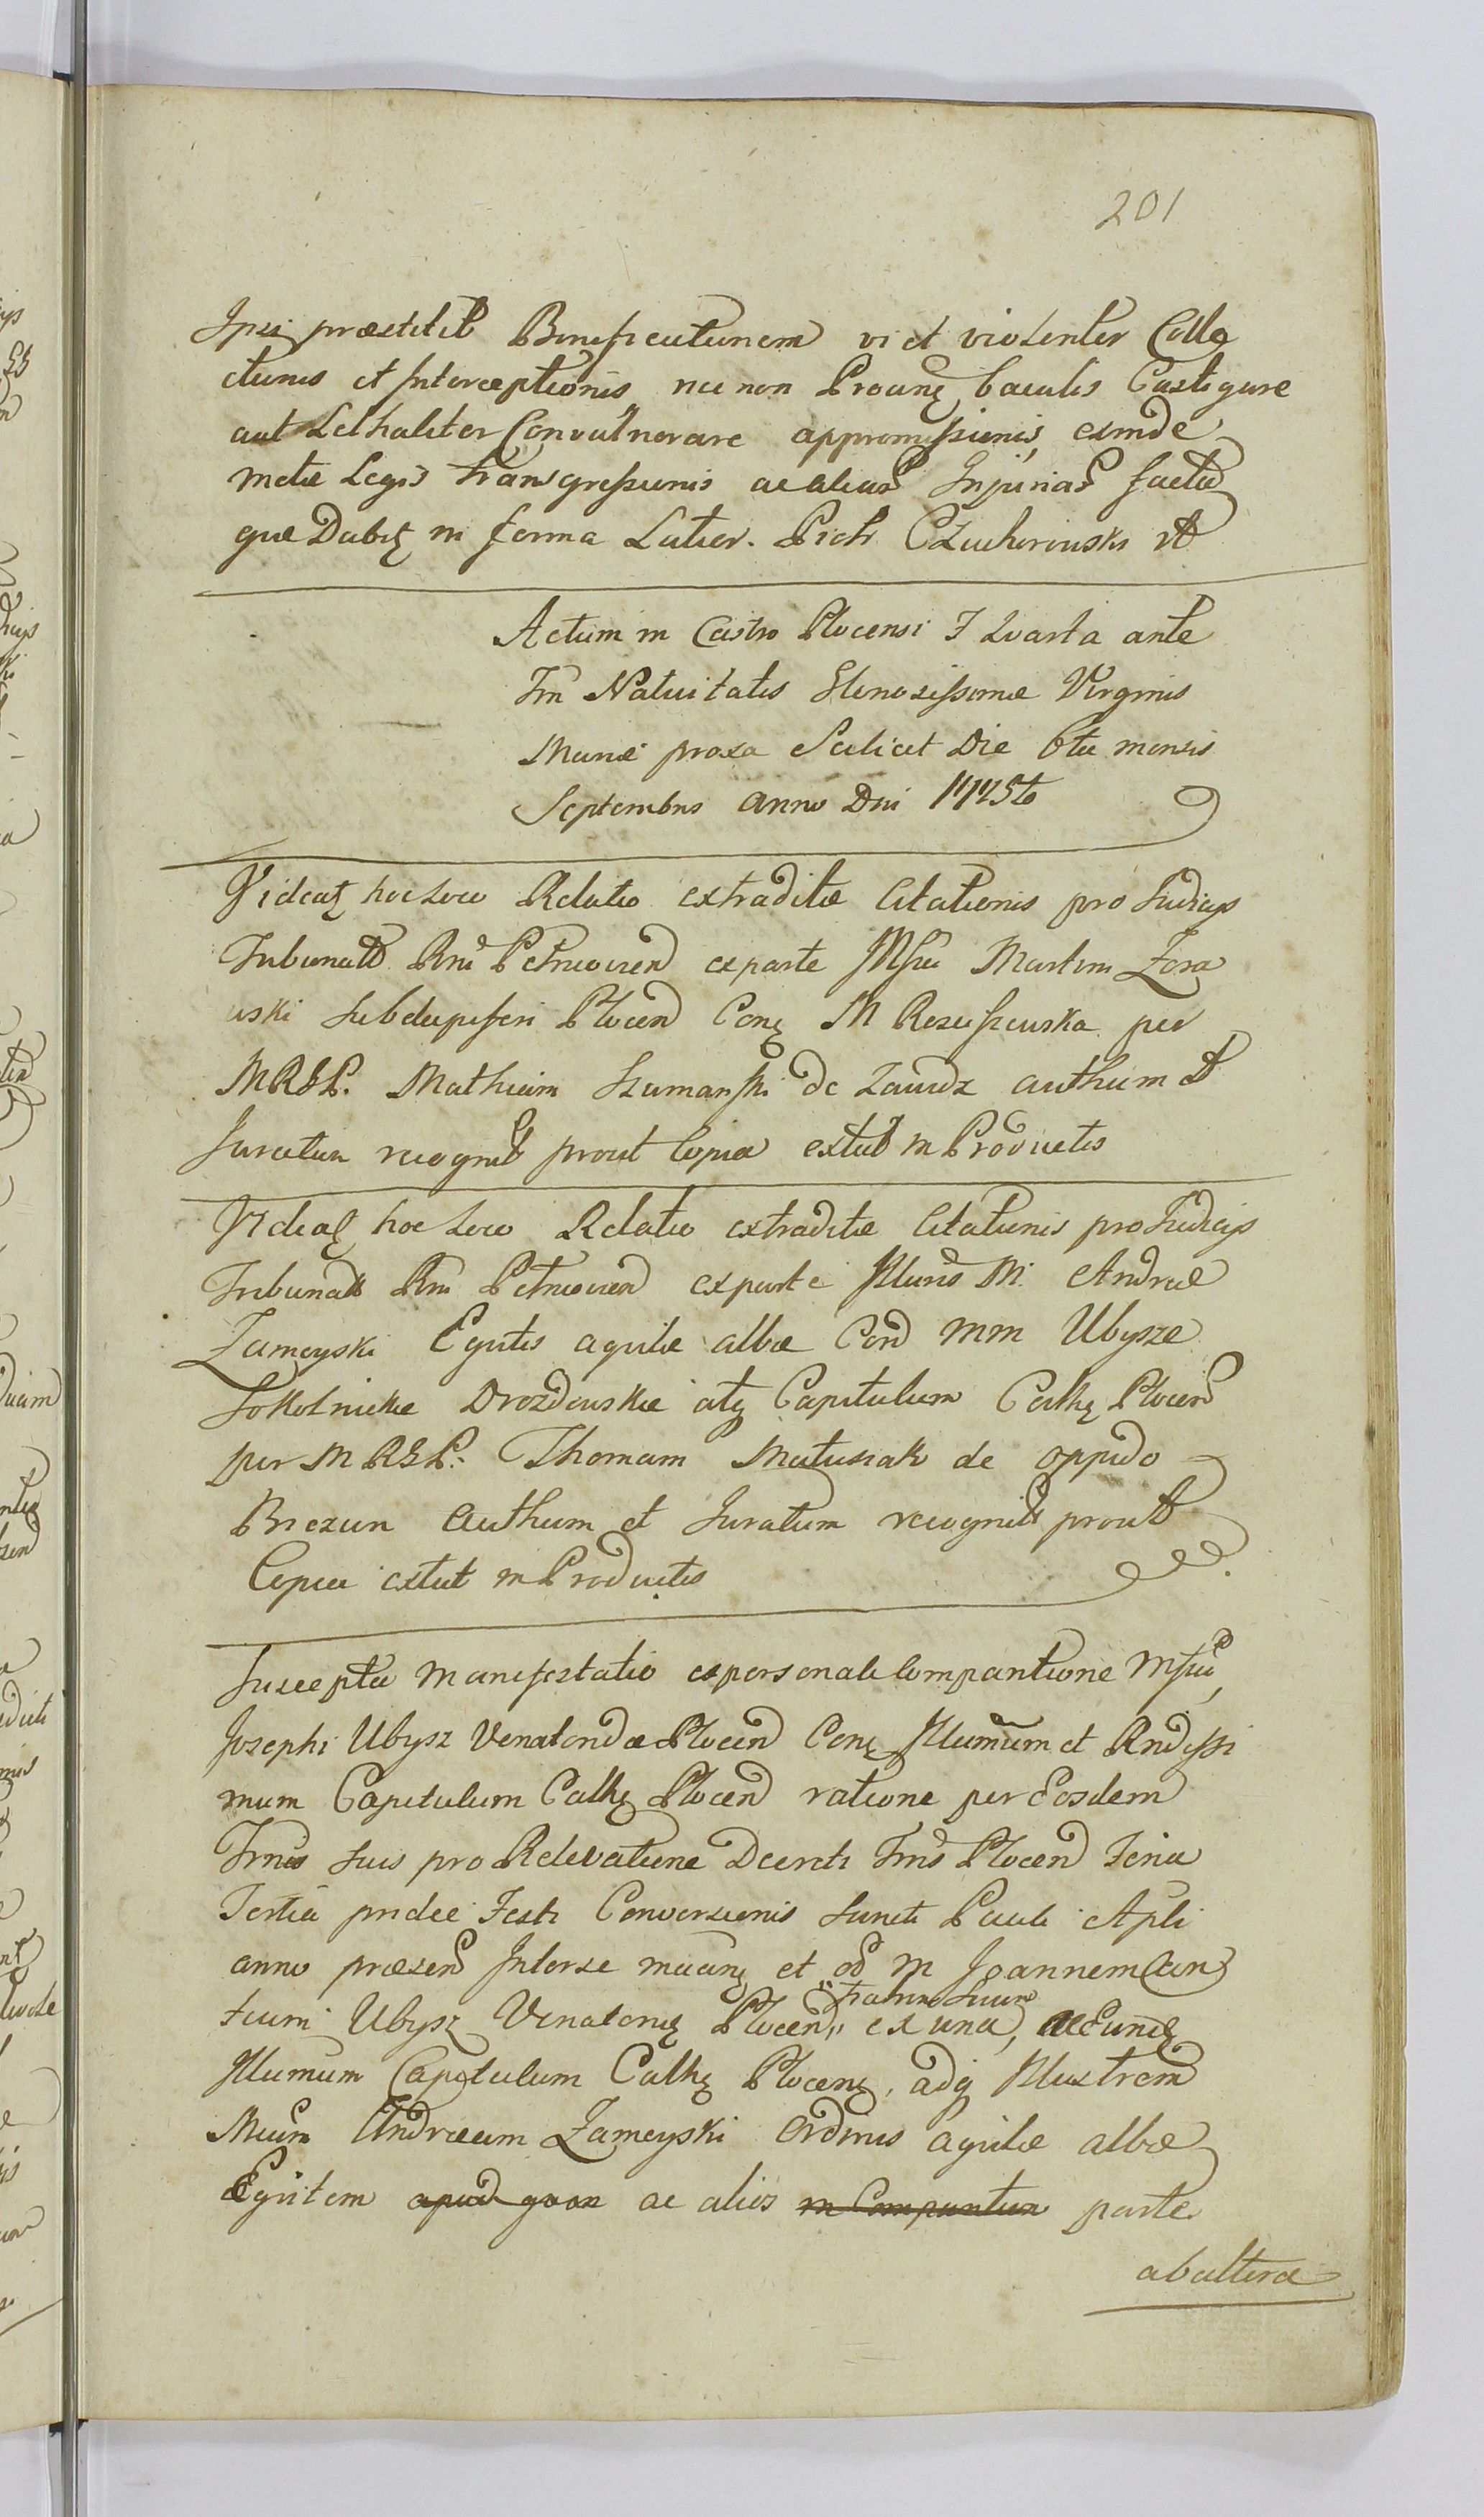 201
Ipsi præstitit Beneficiationem vi et violenter Colle
ctionis et Interceptionis nec non Proang baculis Castigare
aut Lethaliter Convulnerare appromissionis, exinde
metæ Legis transgressionis ac alias Injurias facta
que Dabit in forma Latior. Piotr Czachorowski
Actum in Castro Plocensi F Quarta ante
Fm Natuitatis Glenosissimæ Virginis
Mariæ proxa Scilicet Die 6ta mensis
Septembris anno Dni
Videat hoc Loco Relatio extraditæ Citationis pro Judiciis
Tribunalt Rni Petricoven ex parte Mfci Martini Zora
wski Subdapiferi Plocen Con M Rosciszewska per
MRGP. Mathiam Szumanski de Zawidz authum et
Juratum recognit prout Copia extat in Productis
Videat hoc Loco Relatio extraditæ Citationis pro Judiciis
Tribunalt Rni Petricoven ex parte Illuris M. Andreæ
Zamoyski Equitis aquilæ albæ Con MM Ubysze
Sokolnickie Drozdowskie atq Capitulum Cathe Plocen
per MRGP. Thomam Matusiak de oppido
Biezun Authum et Juratum recognit prout
Copia extat in Productis
Suscepta Manifestatio ex personali Comparitione Mfci,
Josephi Ubysz Venatoridæ Plocen Con Illumum et Rndissi
mum Capitulum Cathe Plocen ratione per Eosdem
Trnis suis pro Relevatione Decreti Trris Plocen Feria
Tertia pridie Festi Conversionis Sancti Pauli Apli
anno præsen Inter se et M Joannem Can
tium Ubysz Venatore Plocen, fratrem suum ex una, ac eunde
Illumum Capitulum Cathe Plocen, adq Illustrem
Mcum Andream Zamoyski Ordinis aquilæ albæ
Equitem apud quos ac alios in Comparitione parte
ab altera